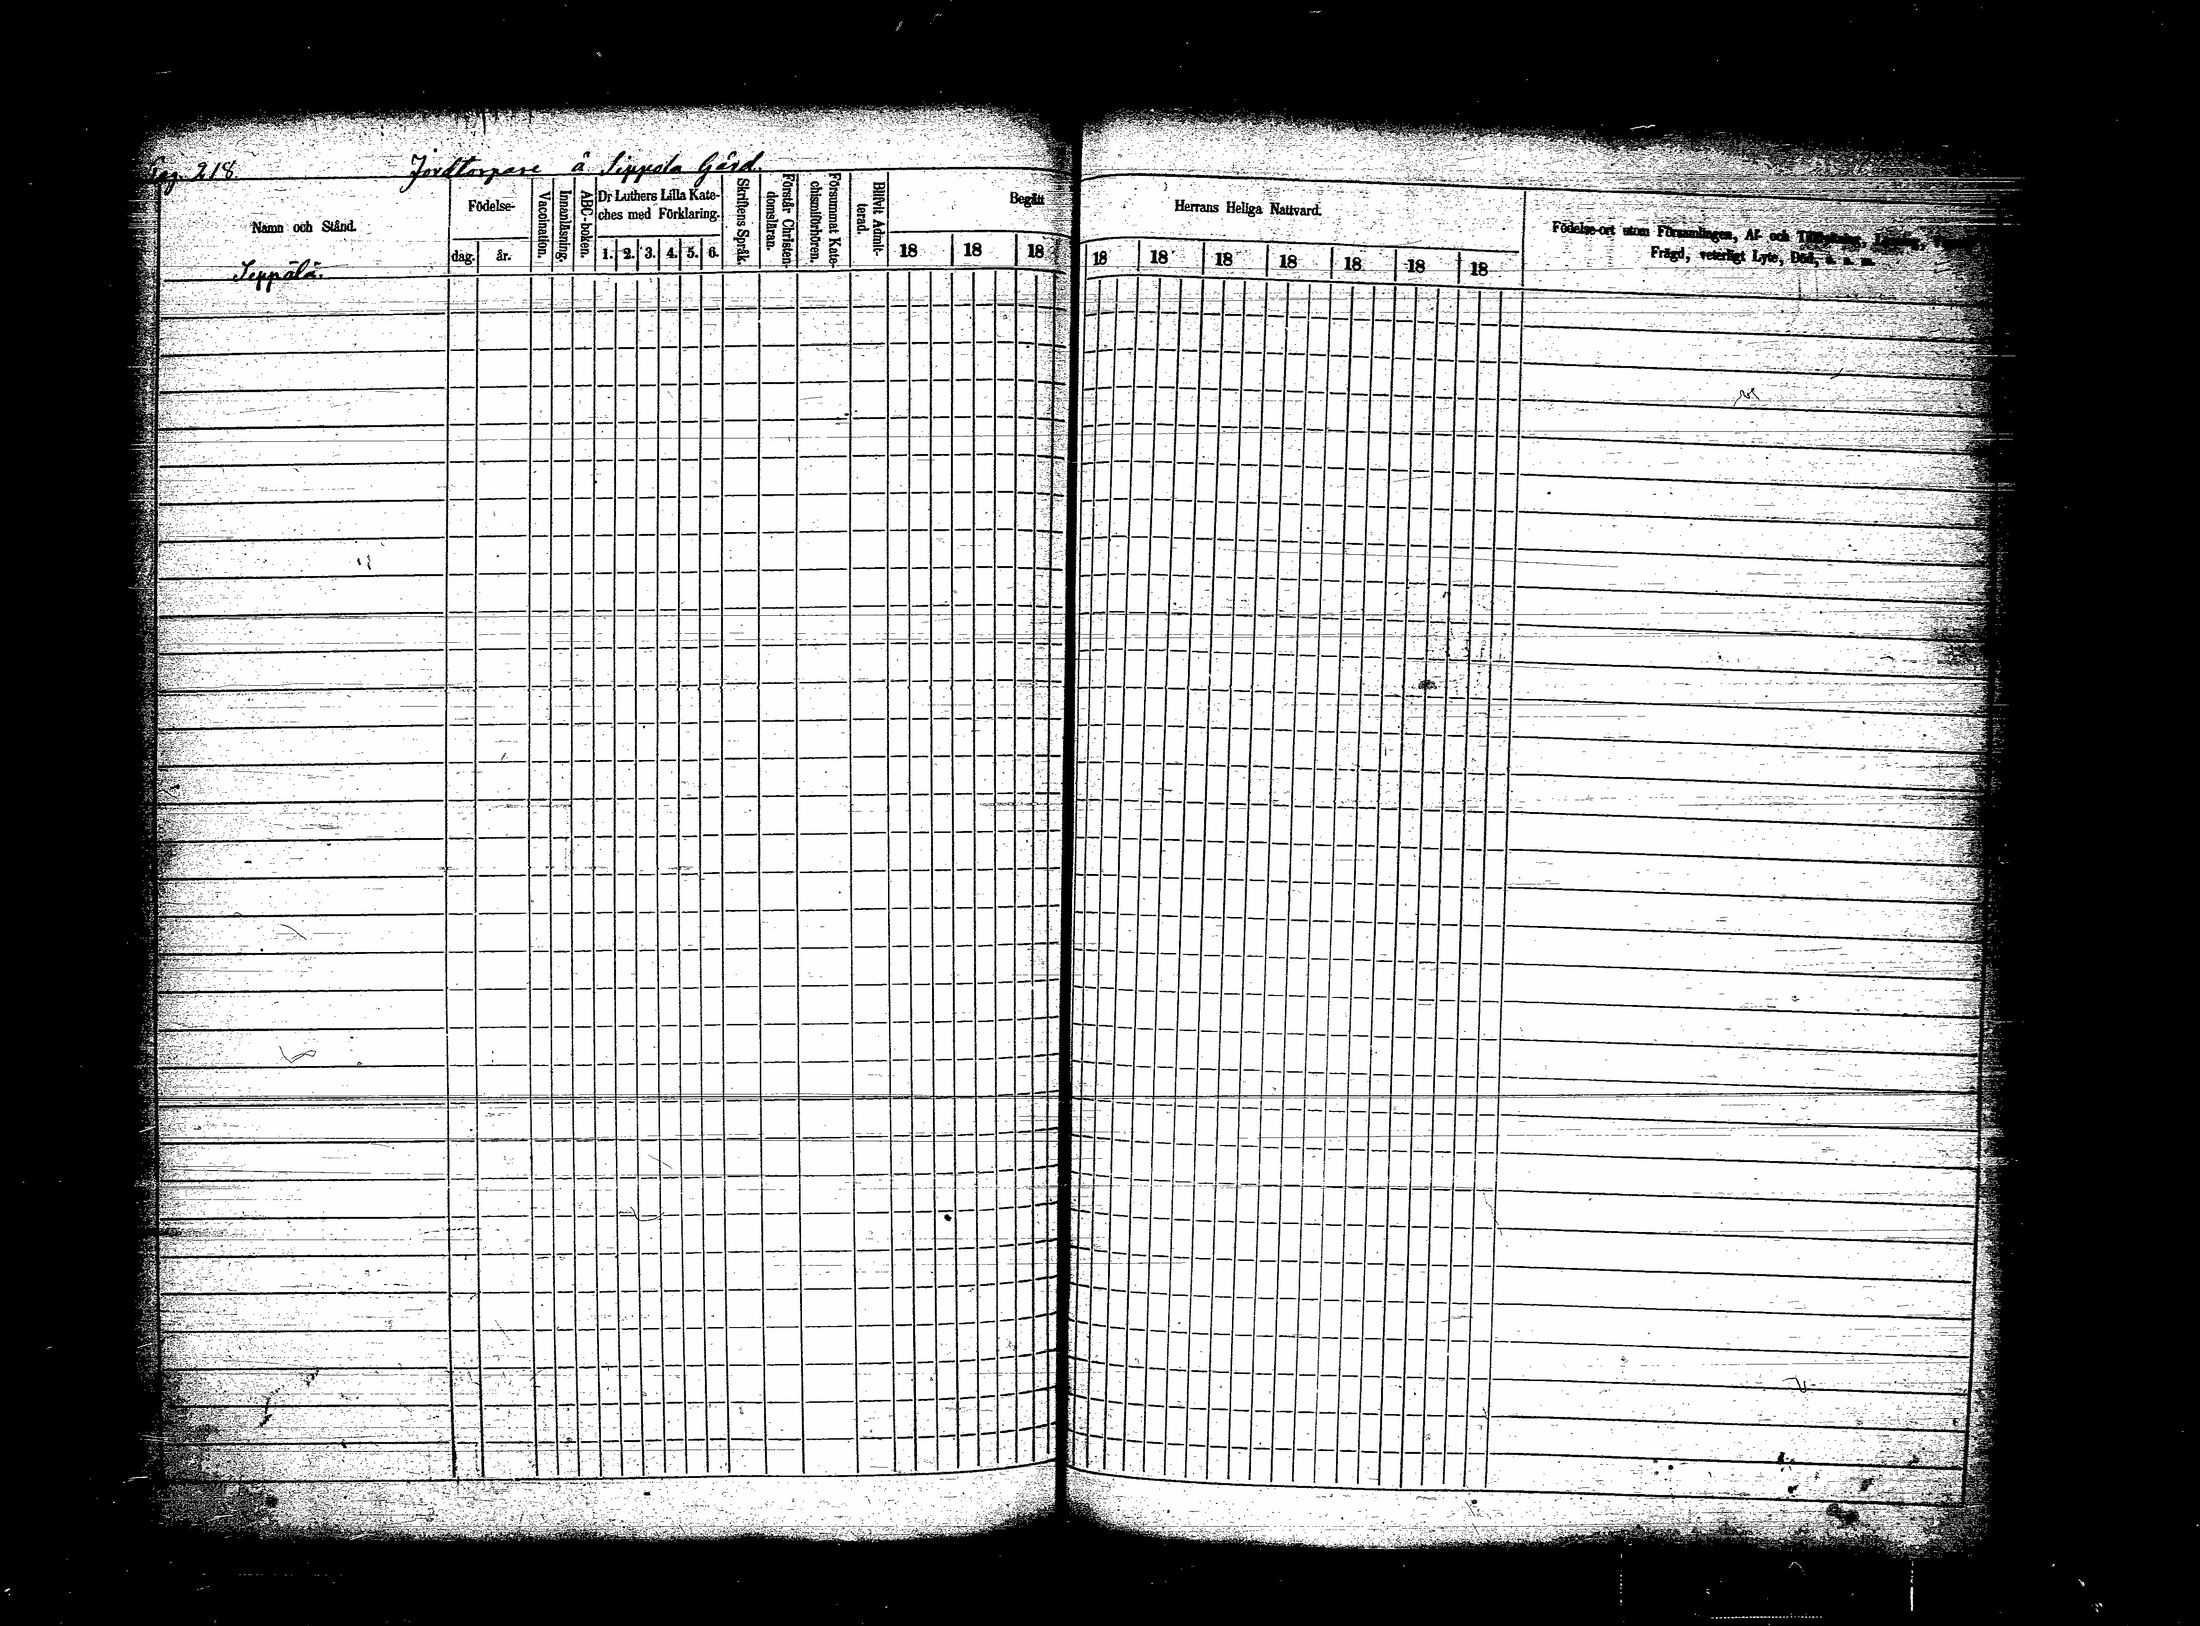 Pag. 218.
Jordtorpare å Sippola Gård.
Namn och Stånd.
Födelse-
dag.
år.
Vaccination.
Innanläsning.
ABC-boken.
Dr Luthers Lilla Kate-
ches med Förklaring.
1. 2. 3. 4. 5. 6.
Skriftens Språk.
Förstår Christen-
domsläran.
Försummat Kate-
chismiförhören.
Blifvit Admit-
terad.
Begått
18 18 18
Herrans Heliga Nattvard.
18 18 18 18 18 18 18
Födelse-ort utom Församlingen, Af- och
Frägd, veterligt Lyte, Död, s. a. m.
Seppälä.